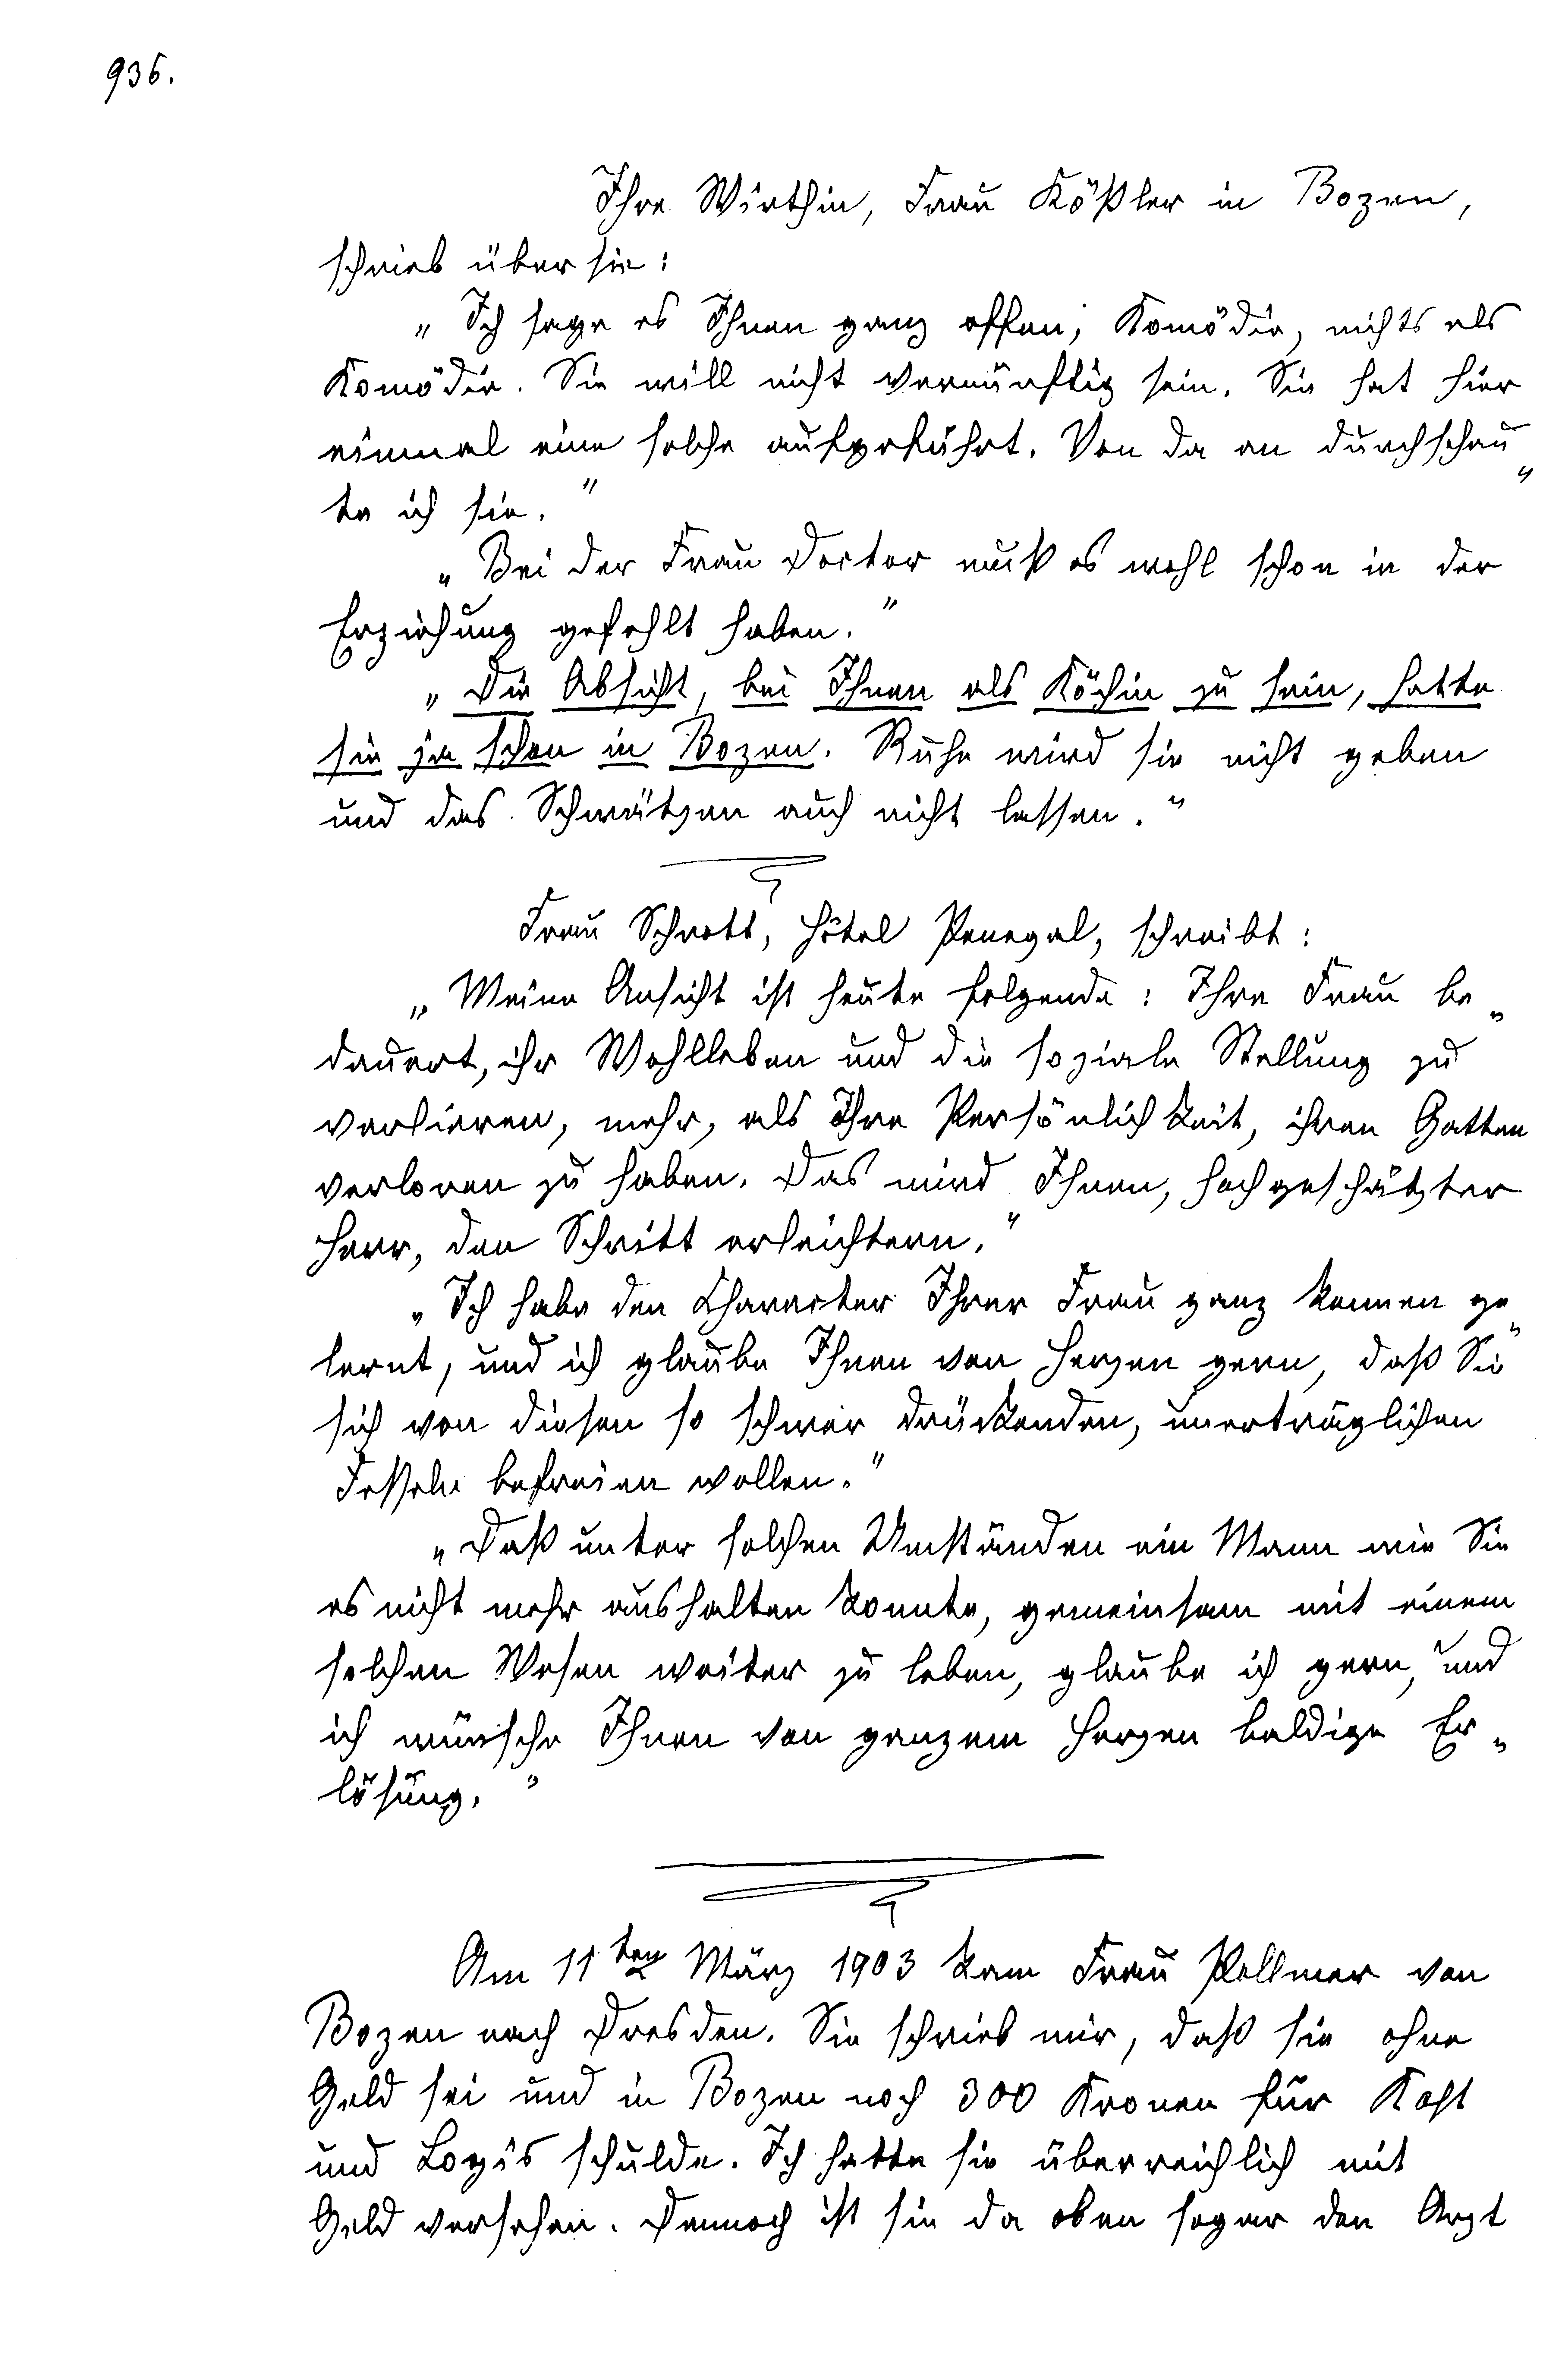 936.
Ihre Wirthin, Frau Kößler in Bozen,
schrieb über sie:
„Ich sage es Ihnen ganz offen; Komödie, nichts als
Komödie. Sie will nicht vernünftig sein. Sie hat hier
einmal eine solche aufgeführt. Von da an durchschau„
te ich sie."
„Bei der Frau Doctor muß es wohl schon in der
Erziehung gefehlt haben."
„Die Absicht, bei Ihnen als Köchin zu sein, hatte
sie ja schon in Bozen. Ruhe wird sie nicht geben
und das Schwätzen auch nicht lassen."
Frau Schrott, Hôtel Penegal, schreibt:
„Meine Ansicht ist heute folgende: Ihre Frau be„
dauert, ihr Wohlleben und die soziale Stellung zu
verlieren, mehr, als Ihre Persönlichkeit, ihren Gatten
verloren zu haben. Das wird Ihnen, hochgeschätzter
Herr, den Schritt erleichtern."
„Ich habe den Character Ihrer Frau ganz kennen ge„
lernt, und ich glaube Ihnen von Herzen gern, daß Sie
sich von diesen so schwer drückenden, unerträglichen
Fesseln befreien wollen."
„Daß unter solchen Umständen ein Mann wie Sie
es nicht mehr aushalten konnte, gemeinsam mit einem
solchen Wesen weiter zu leben, glaube ich gern, und
ich wünsche Ihnen von ganzem Herzen baldige Er„
lösung."
Am 11ten März 1903 kam Frau Pollmer von
Bozen nach Dresden. Sie schrieb mir, daß sie ohne
Geld sei und in Bozen noch 300 Kronen für Kost
und Logis schulde. Ich hatte sie überreichlich mit
Geld versehen. Dennoch ist sie da oben sogar den Arzt